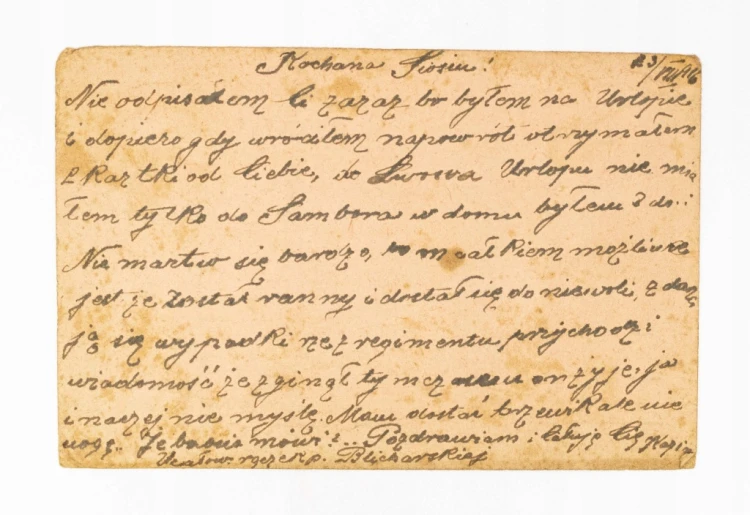 Kochana Ziosiu!
23/VIII 916
Nie odpisałem Ci zaraz bo byłem na Urlopie
i dopiero gdy wróciłem napowrót otrzymałem
2 kartki od Ciebie, do Lwowa Urlopu nie mia
łem tylko do Sambora w domu byłem 3 d..
Nie martw się bardzo, bo całkiem możliwe
jest że został ranny i dostał się do niewoli, zdarza
ją się wypadki że z regimentu przychodzi
wiadomość że zginął tymcza on żyje, ja
inaczej nie myślę. Mam dostać ale nie
mogę. mówi?.. Pozdrawiam i całuję Cię
Ucałow. rączek p. Blicharskiej